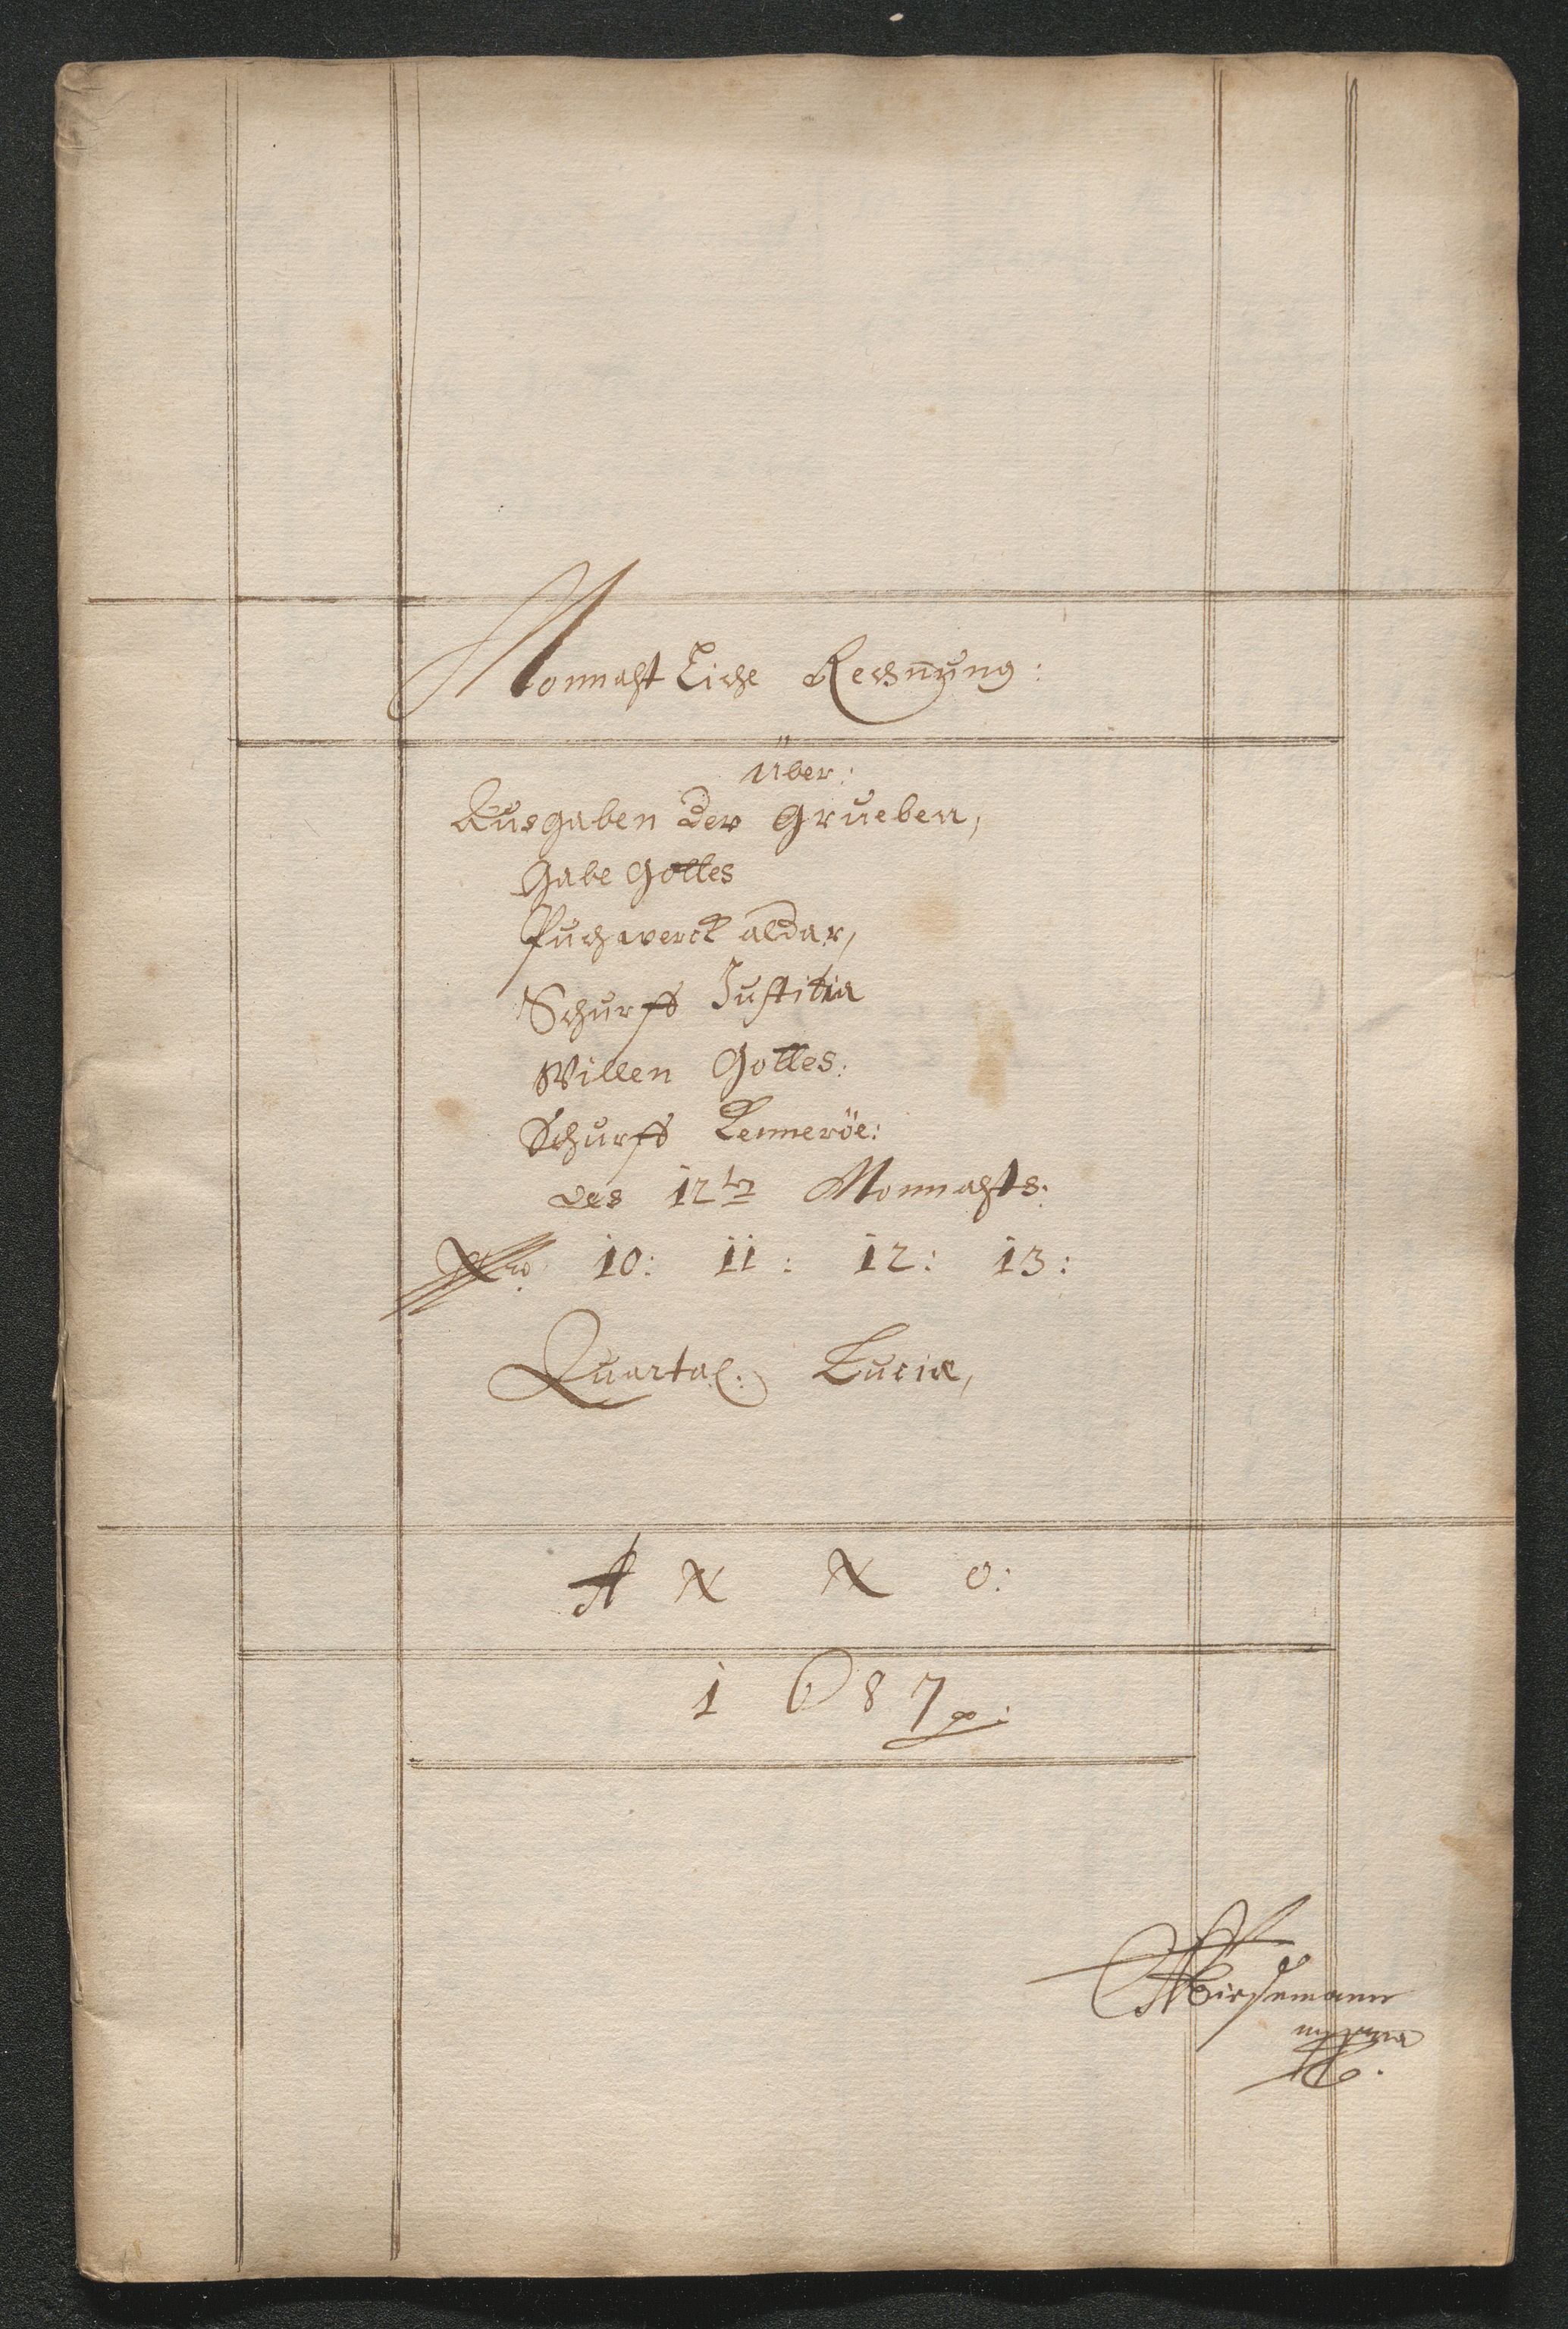 Monnahtliche Rechnung:
über:
Ausgaben der Grueben,
Gabe Gottes
Puchwerck aldar,
Schurff Justitia
Willen Gottes:
Schurff Lenneröe:
des 12t. Monnahts:
No 10: 11: 12: 13:
Quartal: Luciæ,
A N N O:
1687
mppria